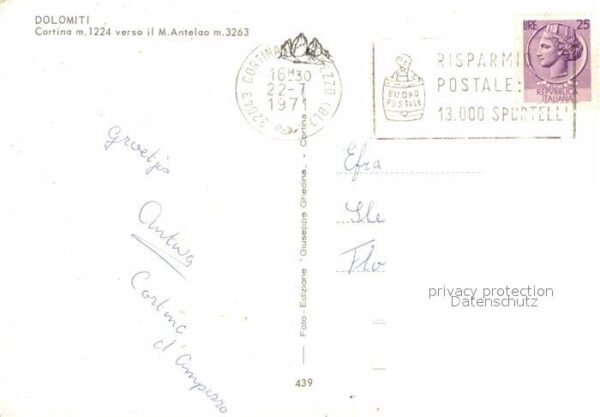 DOLOMITI
Cortina m. 1224 verso il M. Antelao m. 3263
32043 CORTINA
EZZO (BL)
16H30
22-7
1971
BUONO
POSTALE
RISPARMI
POSTALE:
13.000 SPORTELLI
LIRE 25
REPVBBLICA
ITALIANA
Groetjes
Cortina
d'Ampezzo
Foto - Edizione "Giuseppe Ghedina" - Cortina
439
Efra
She
Flo
privacy protection
Datenschutz